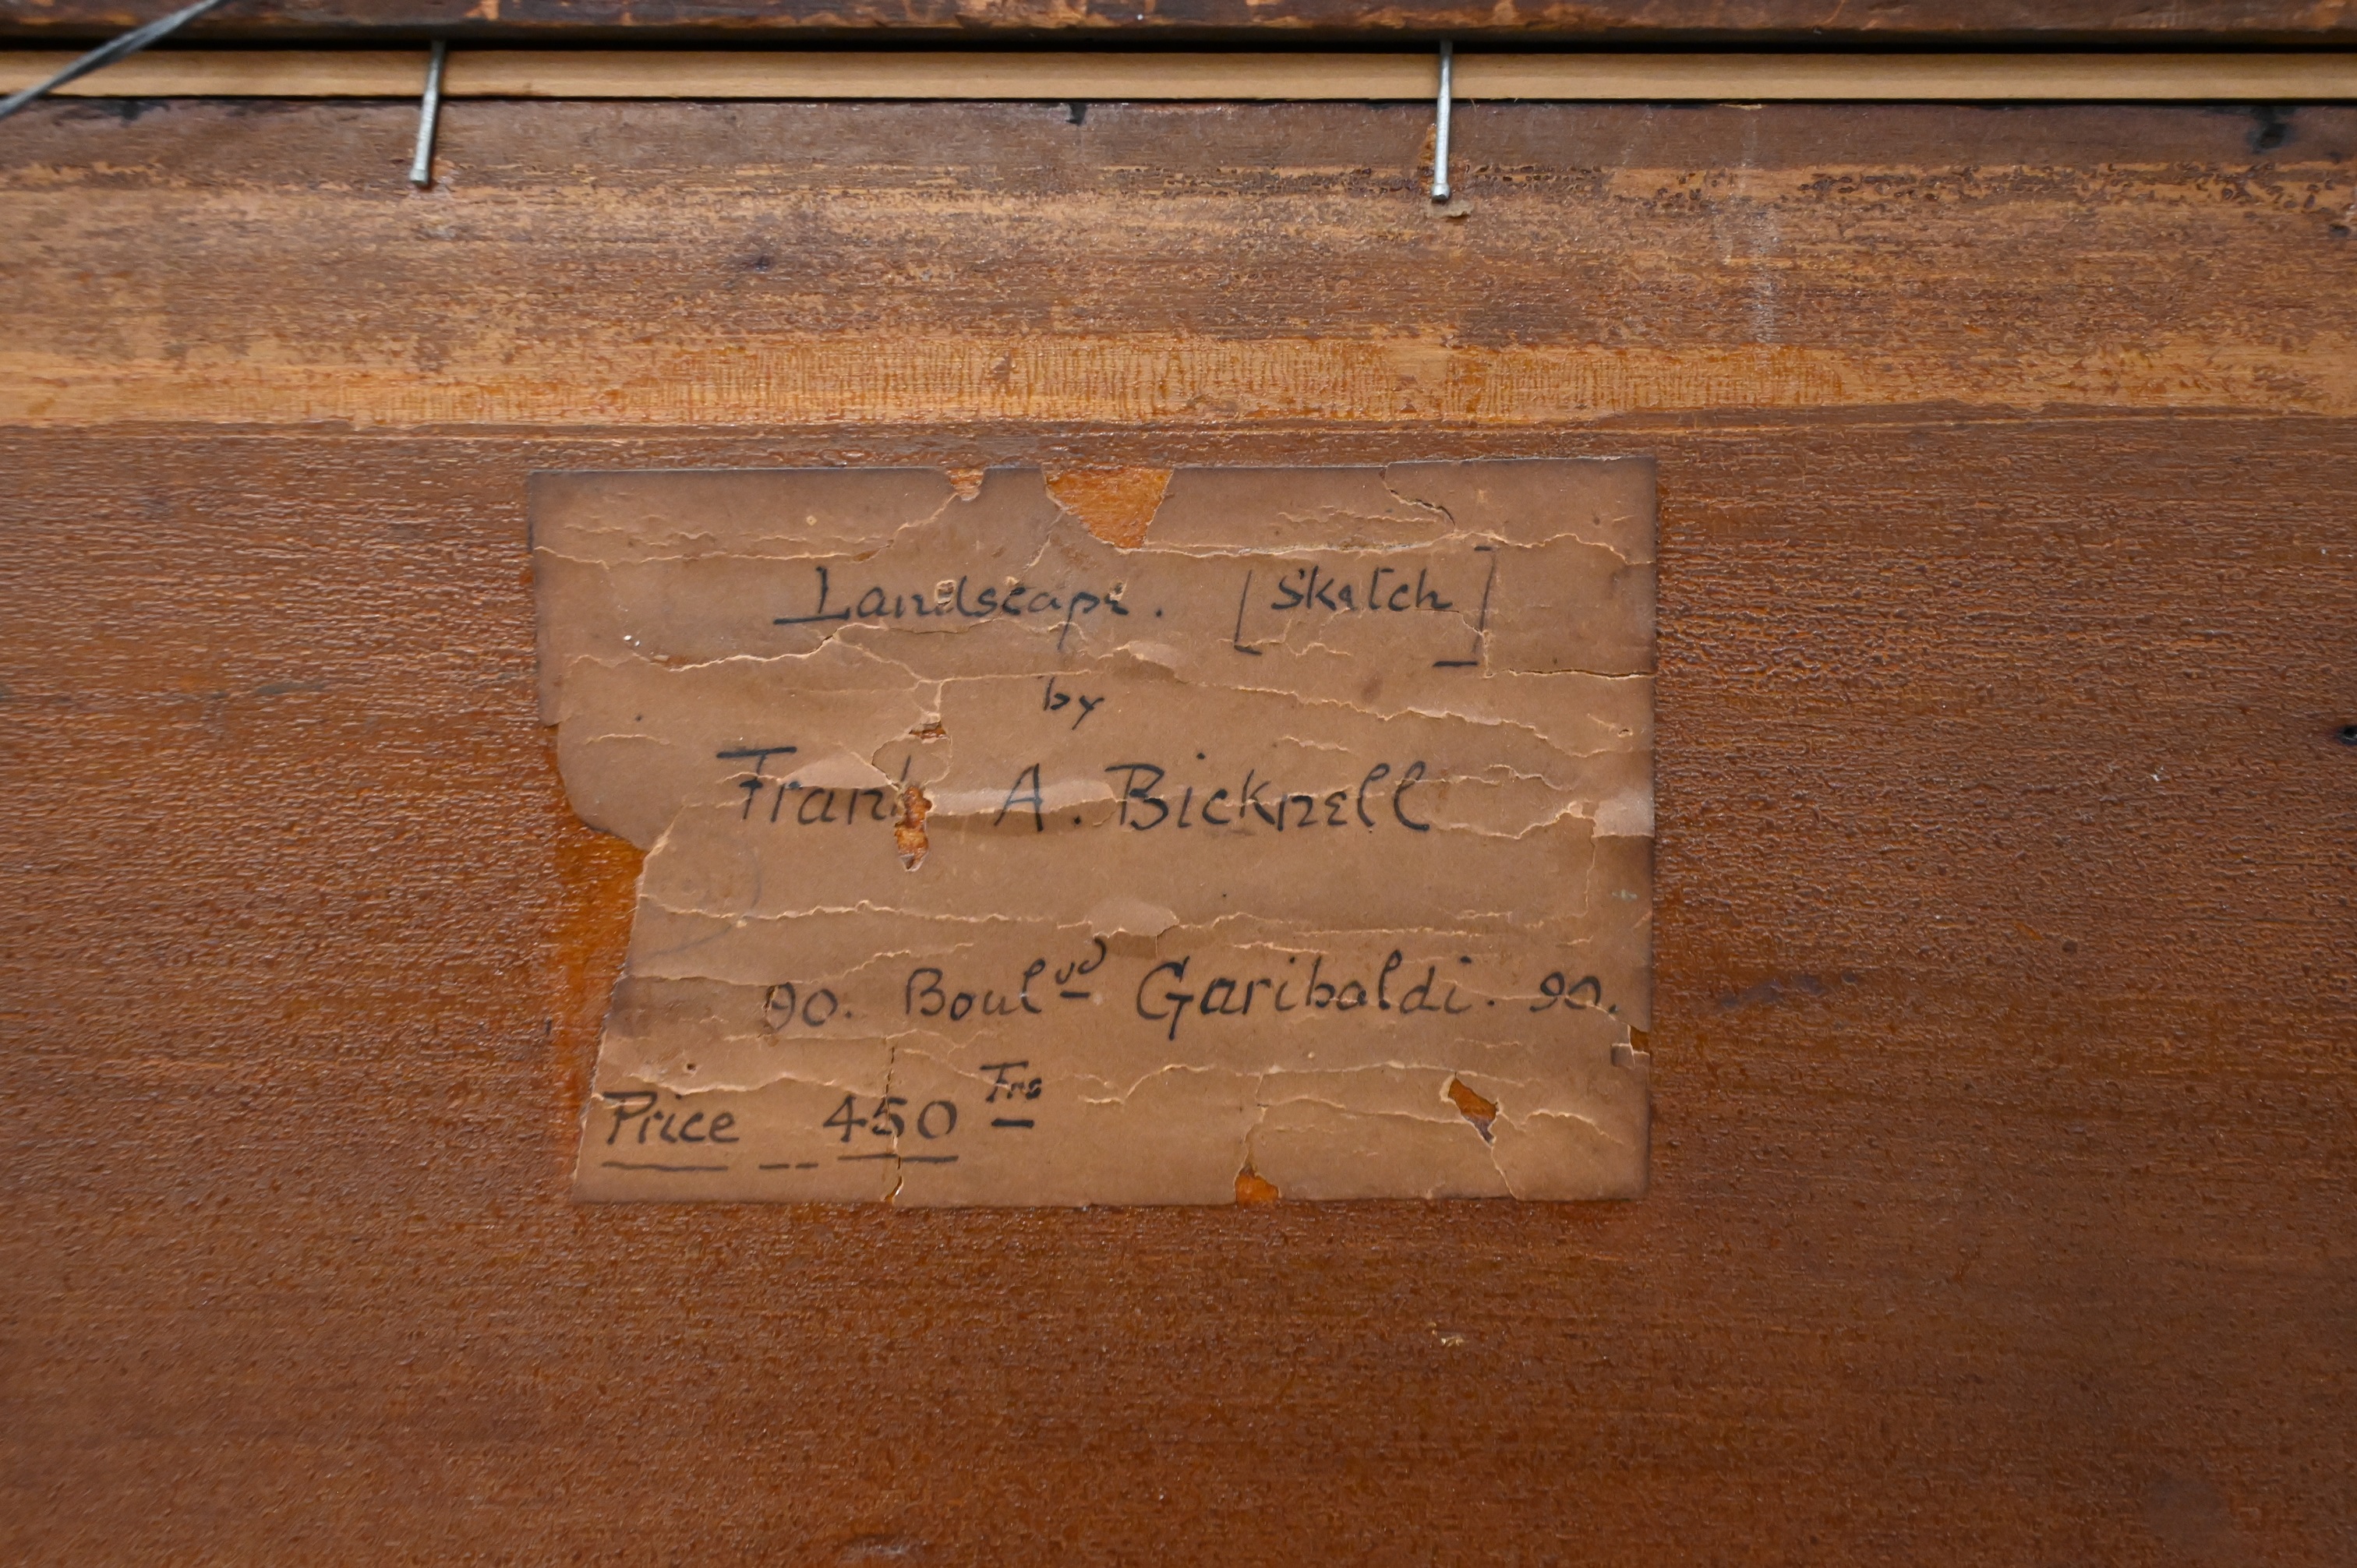 Landscape. [Sketch]
by
Frank A. Bicknell
90. Boulvd Garibaldi. 90.
Price 450 Frs